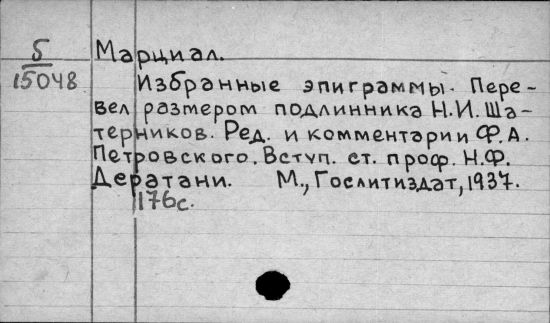 Б
15048
Марциал.
Избранные эпиграммы. Пере-
вел размером подлинника Н.И. Ша-
терников. Ред. и комментарии Ф.А.
Петровского. Вступ. ст. проф. Н.Ф.
Дератани. М., Гослитиздат, 1937.
176с.